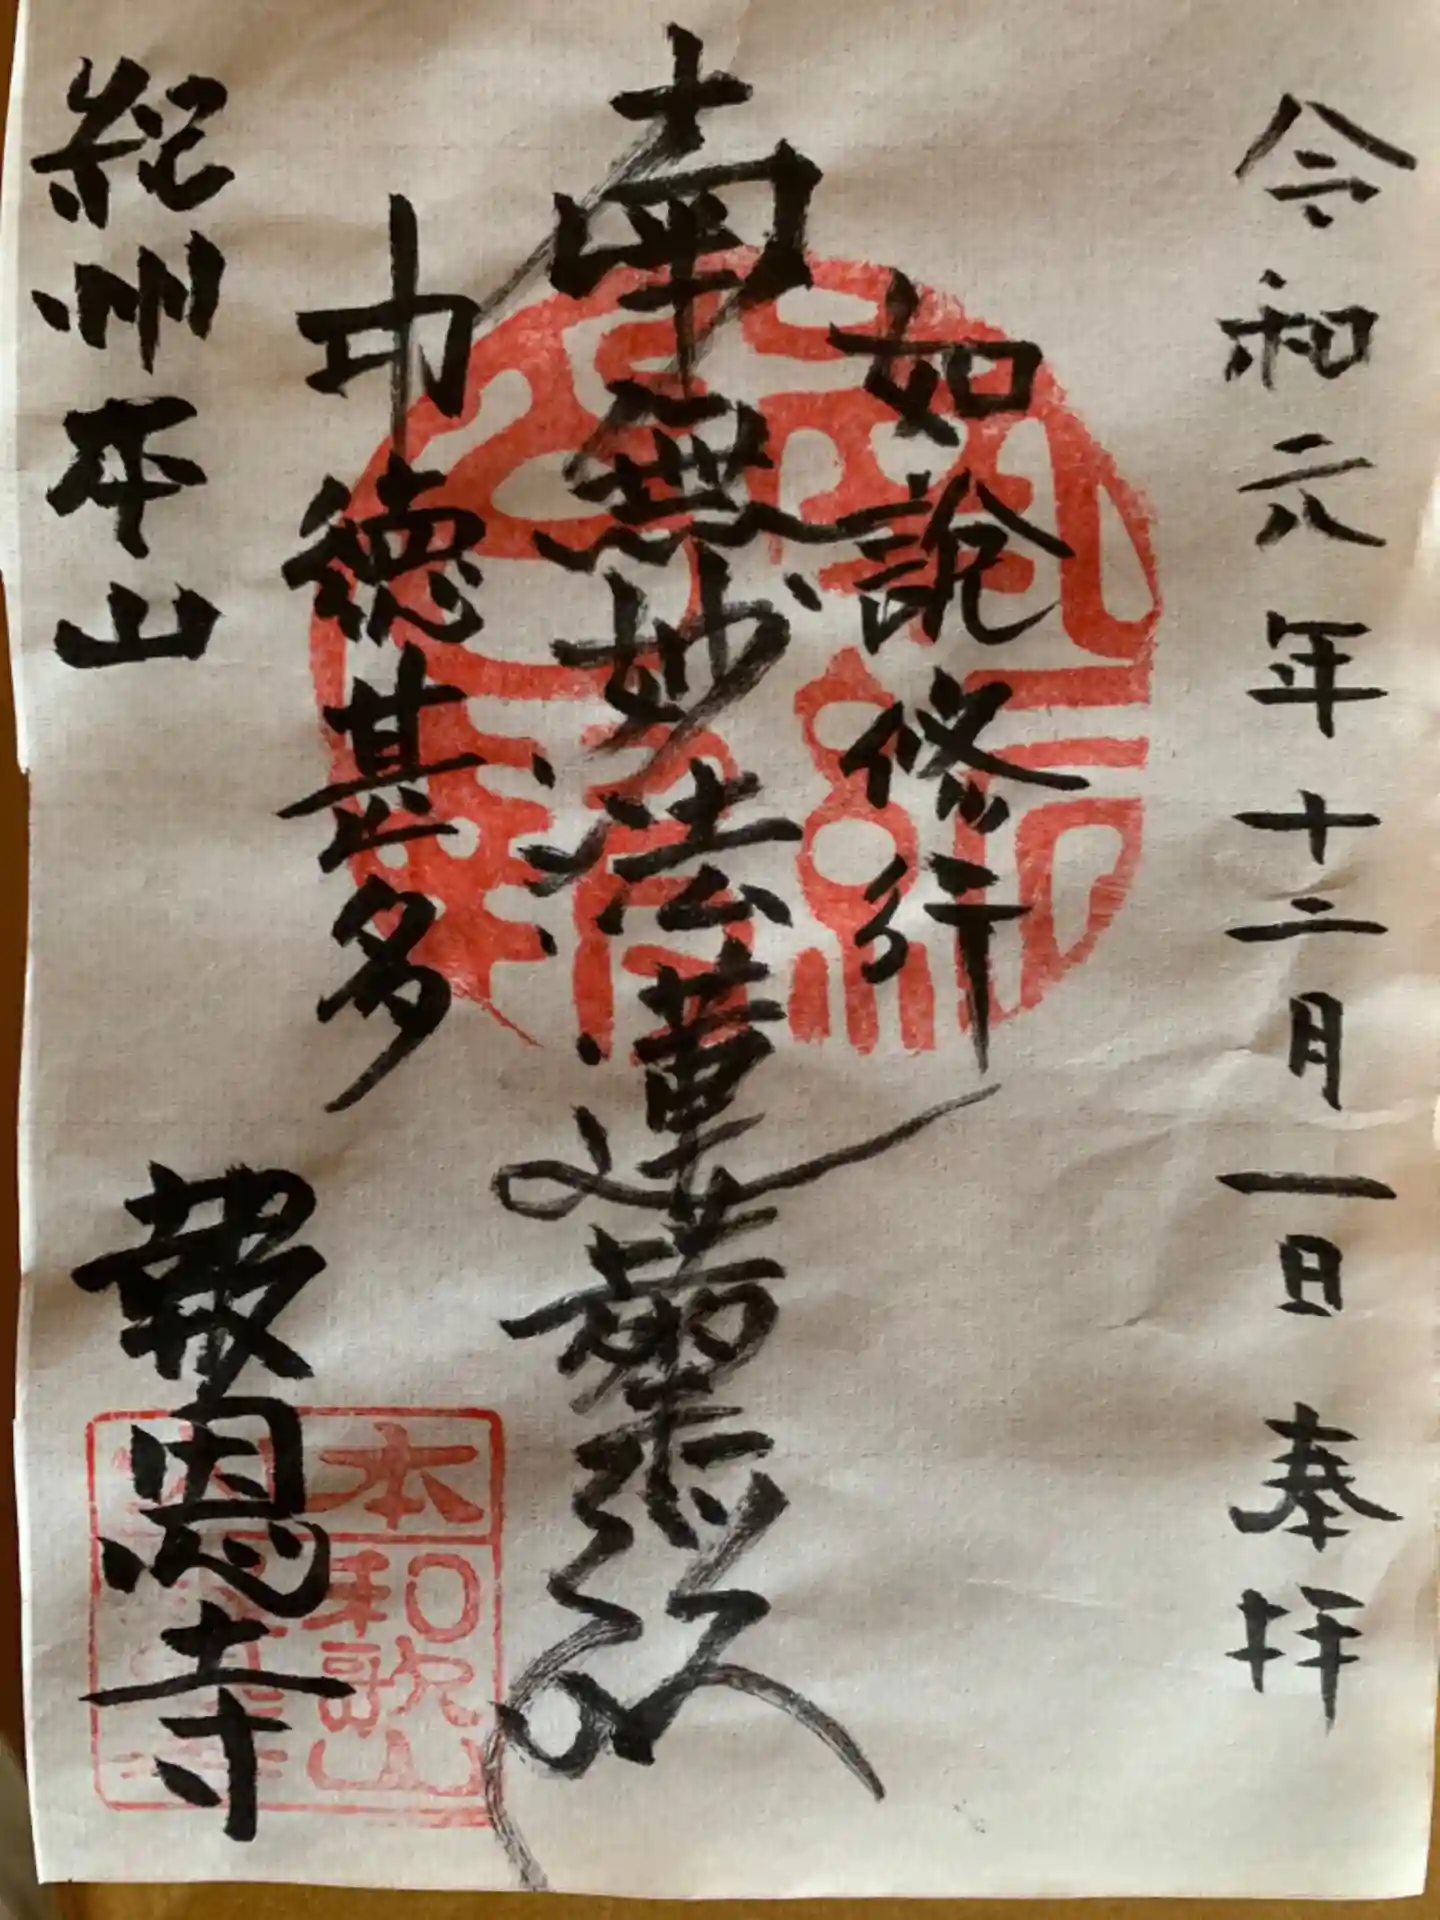 令和元年十二月一日 奉拝
如説修行
南無妙法蓮華経
功徳甚多
紀州本山
報恩寺
本
和歌山